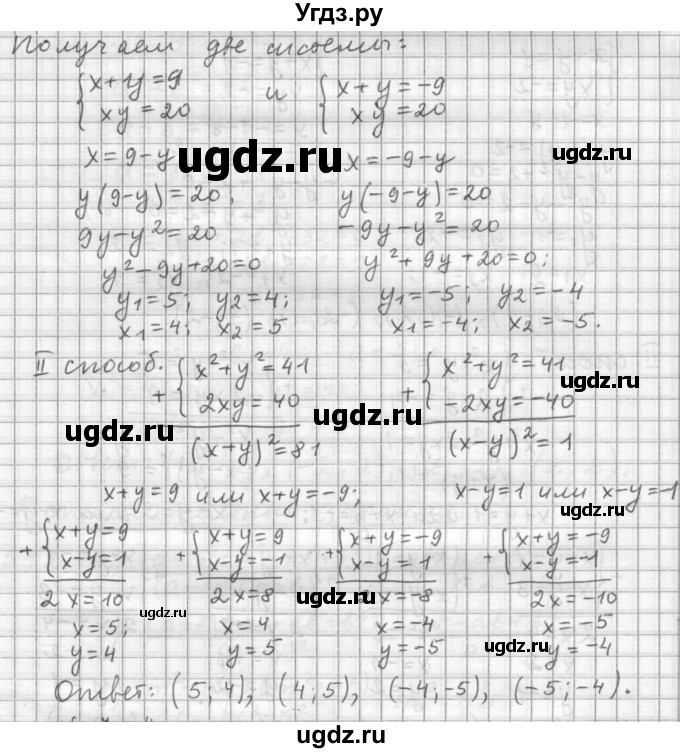 Угдз.ру
Получаем две системы:
{x+y=9 и {x+y=-9
xy=20 xy=20
x=9-y ugdz.ru x=-9-y ugdz.ru
y(9-y)=20; y(-9-y)=20
9y-y²=20 -9y-y²=20
y²-9y+20=0 y²+9y+20=0;
y₁=5; y₂=4; y₁=-5; y₂=-4
ugdz.ru ugdz.ru
x₁=4; x₂=5 x₁=-4; x₂=-5.
II способ. + {x²+y²=41 + {x²+y²=41
2xy=40 -2xy=-40
ugdz.ru ugdz.ru ugdz.ru
(x+y)²=81 (x-y)²=1
x+y=9 или x+y=-9; x-y=1 или x-y=-1
ugdz.ru
+ {x+y=9 + {x+y=9 + {x+y=-9 + {x+y=-9
x-y=1 x-y=-1 x-y=1 x-y=-1
2x=10 2x=8 2x=-8 2x=-10
ugdz.ru ugdz.ru
x=5; x=4 x=-4 x=-5
y=4 y=5 y=-5 y=-4
ugdz.ru
Ответ: (5;4), (4;5), (-4;-5), (-5;-4).
ugdz.ru